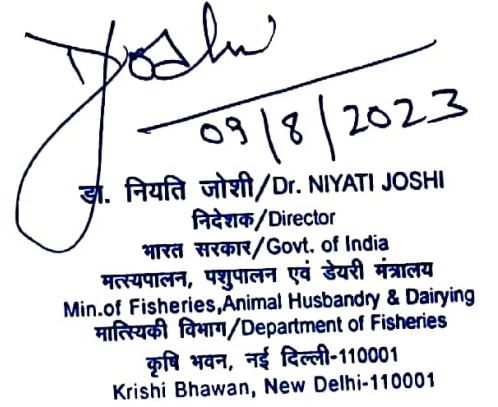 Joshi
09/8/2023
डा. नियति जोशी/Dr. NIYATI JOSHI
निदेशक/Director
भारत सरकार/Govt. of India
मत्स्यपालन, पशुपालन एवं डेयरी मंत्रालय
Min.of Fisheries,Animal Husbandry & Dairying
मात्स्यिकी विभाग/Department of Fisheries
कृषि भवन, नई दिल्ली-110001
Krishi Bhawan, New Delhi-110001